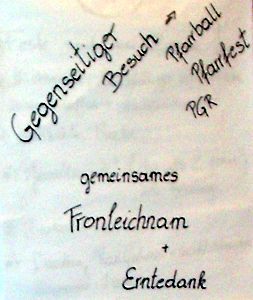 Gegenseitiger
Besuch →
Pfarrball
Pfarrfest
PGR
gemeinsames
Fronleichnam
+
Erntedank